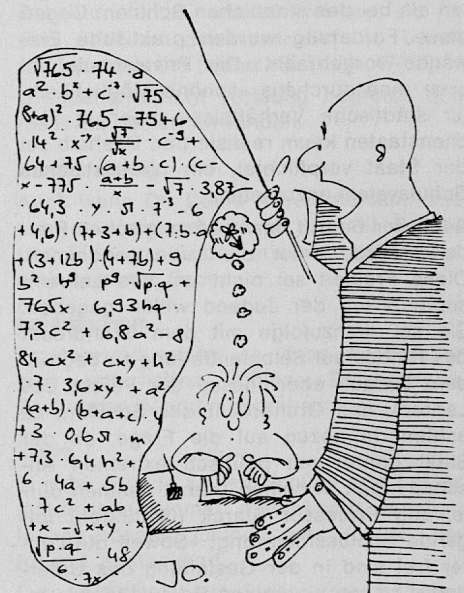 √765 · 74 · a
a² · b² + c² · √75
(8+a)² · 765 - 754b
· 14² · x⁻y · √7/√x · c⁻⁹ +
64 + 75 · (a+b · c) · (c -
x - 775 (a+b)/x √7 · 3,87
- 64,3 y · 51 7⁻³ - 6
+ 4,6) · (7+3+b) + (7·b·a
+ (3+12b) · (4+7b) + 9
b² · h⁹ p⁹ · √p·q -
765x · 6,93hq
7,3c² + 6,8a² - 8
84cx² + cxy + h²
- 7 · 36xy² · q²
· (a+b) · (b+a+c) ·
+ 3 · 0,6
+ 7,3 · 6,4h² +
6 4a + 5b
- 7c² + ab
+x - √x+y · x
√p·q · 48
6 · 7x